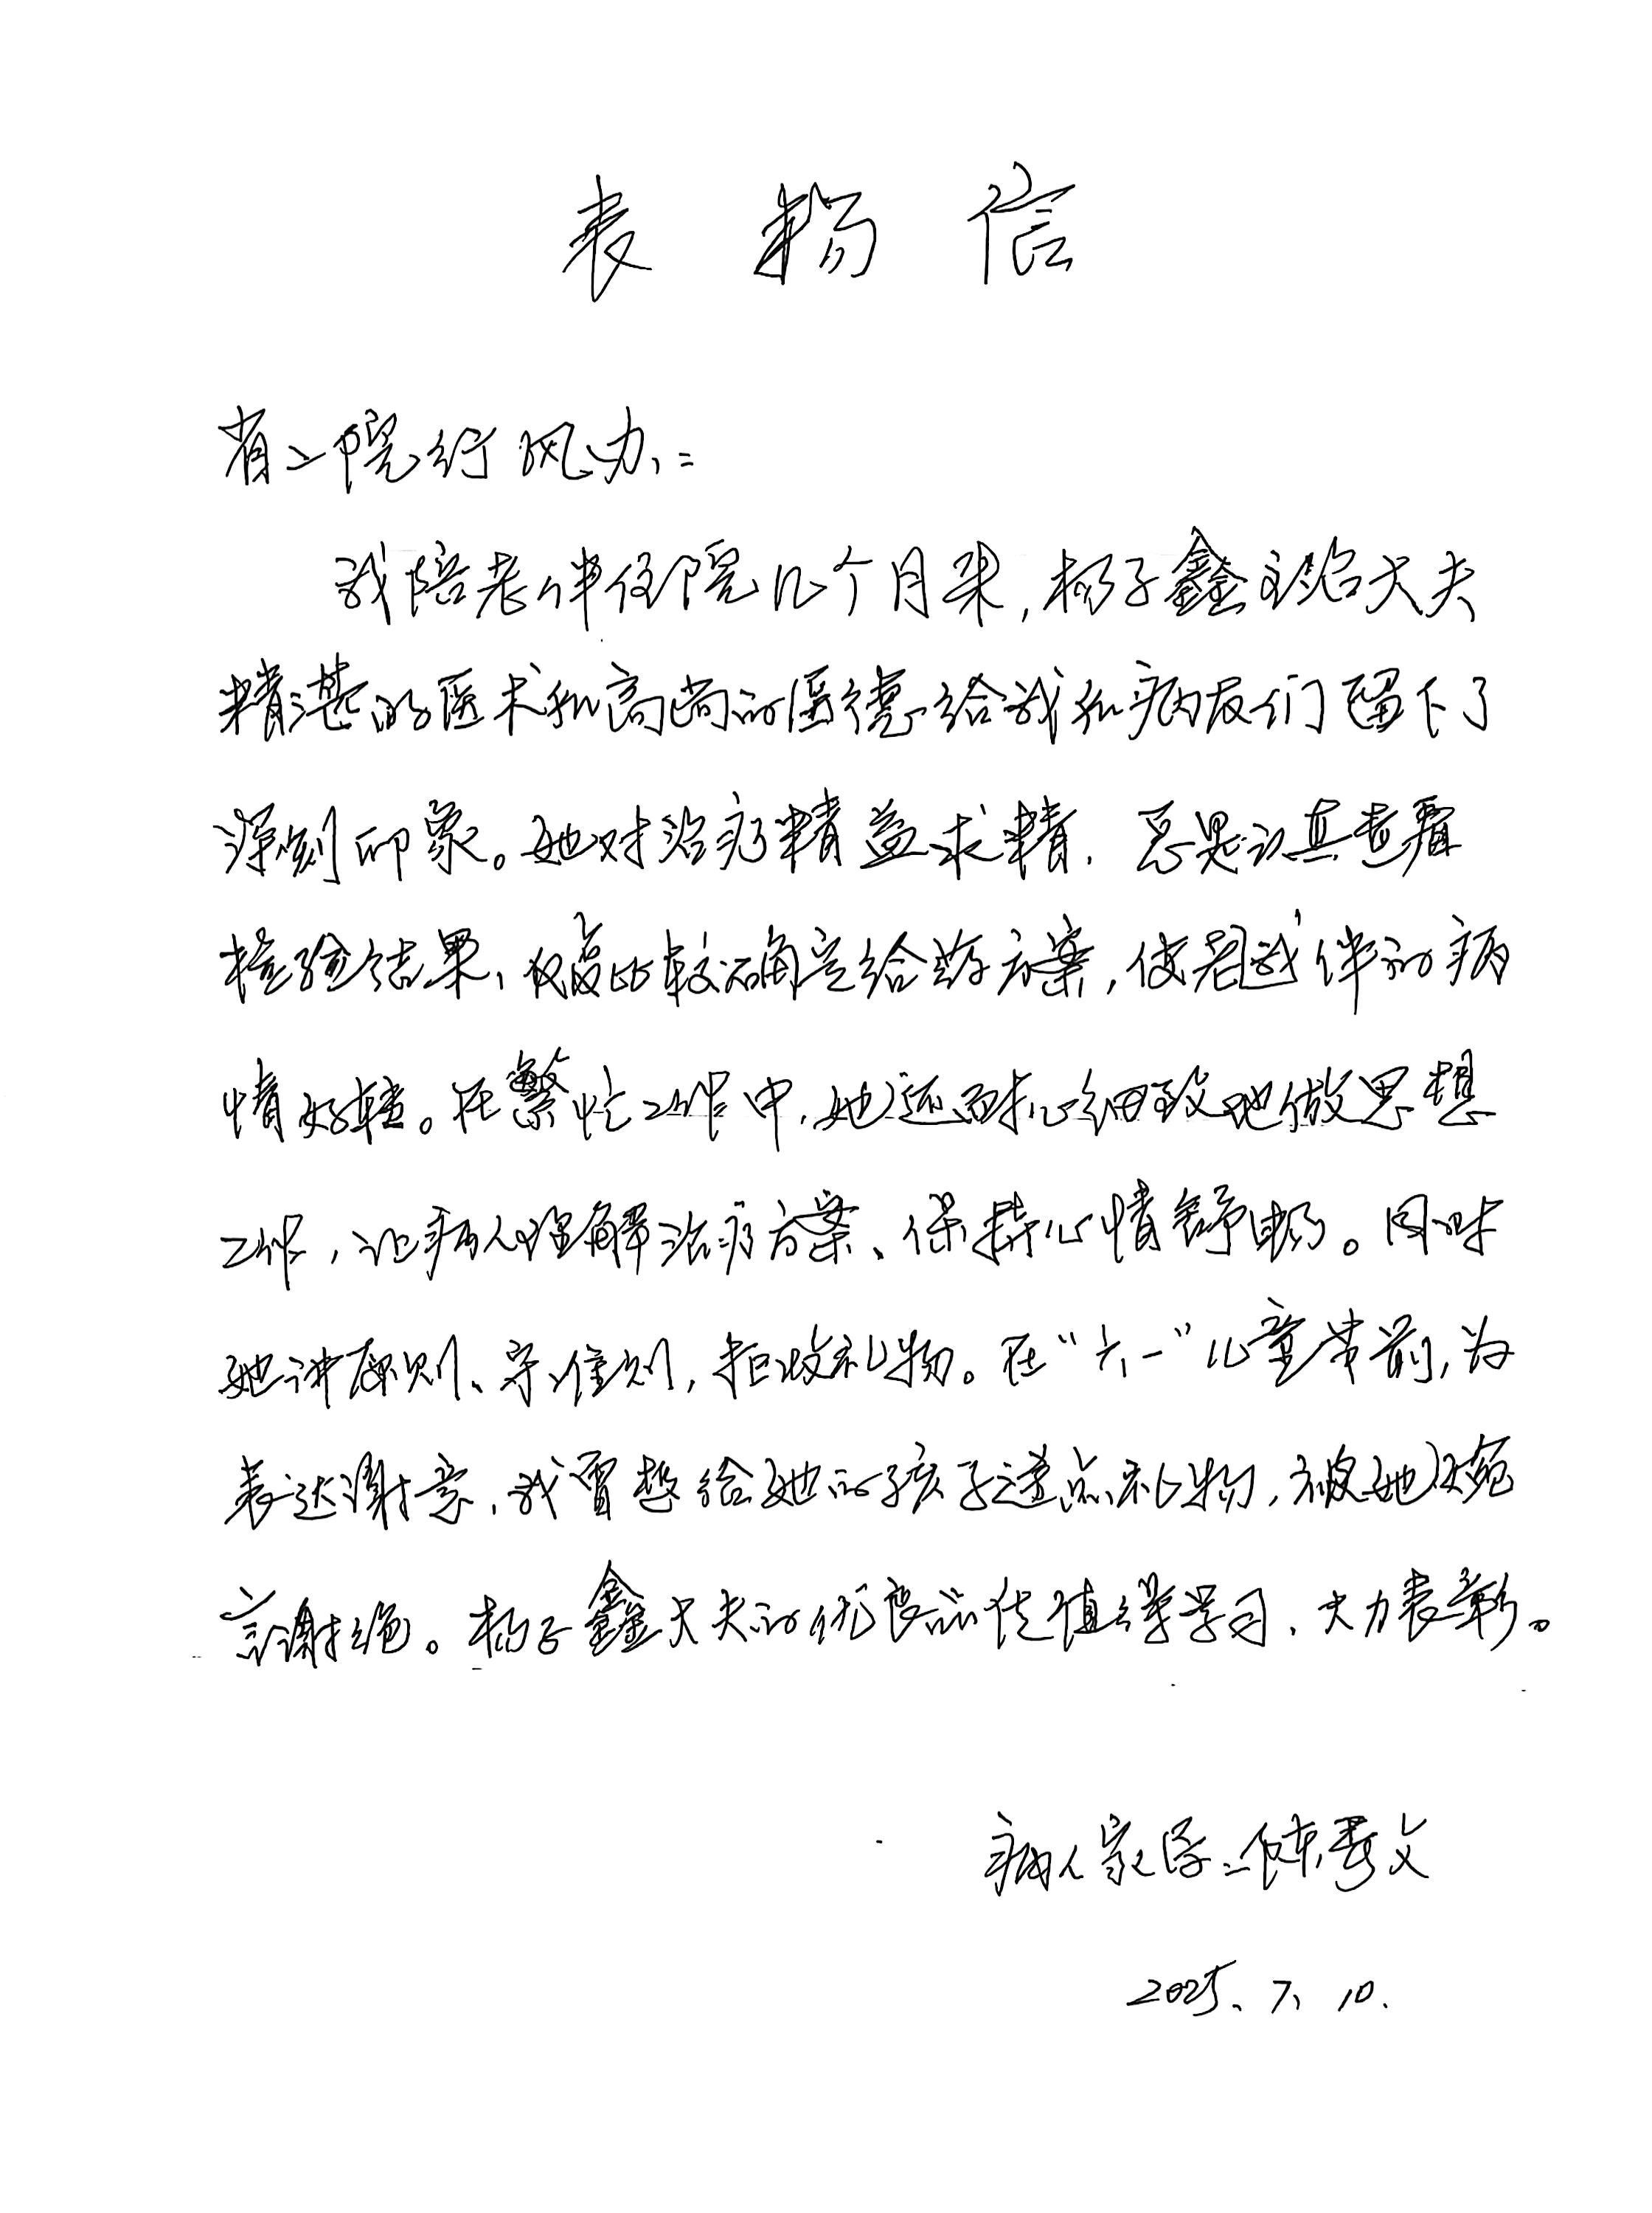 表扬信
省二院行风办：
我陪老伴住院几个月来，杨子鑫主治大夫
精湛的医术和高尚的医德给我和病友们留下了
深刻印象。她对治疗精益求精，总是认真查看
检验结果，反复比较确定给药方案，使老伴的病
情好转。在繁忙工作中，她还耐心细致地做思想
工作，让病人理解治疗方案、保持心情舒畅。同时
她讲原则、守准则，拒收礼物。在“六一”儿童节前，为
表达谢意，我曾想给她的孩子送点礼物，被她婉
言谢绝。杨子鑫大夫的优良品德值得学习、大力表彰。
病人家属：陈秀文
2025、7、10.